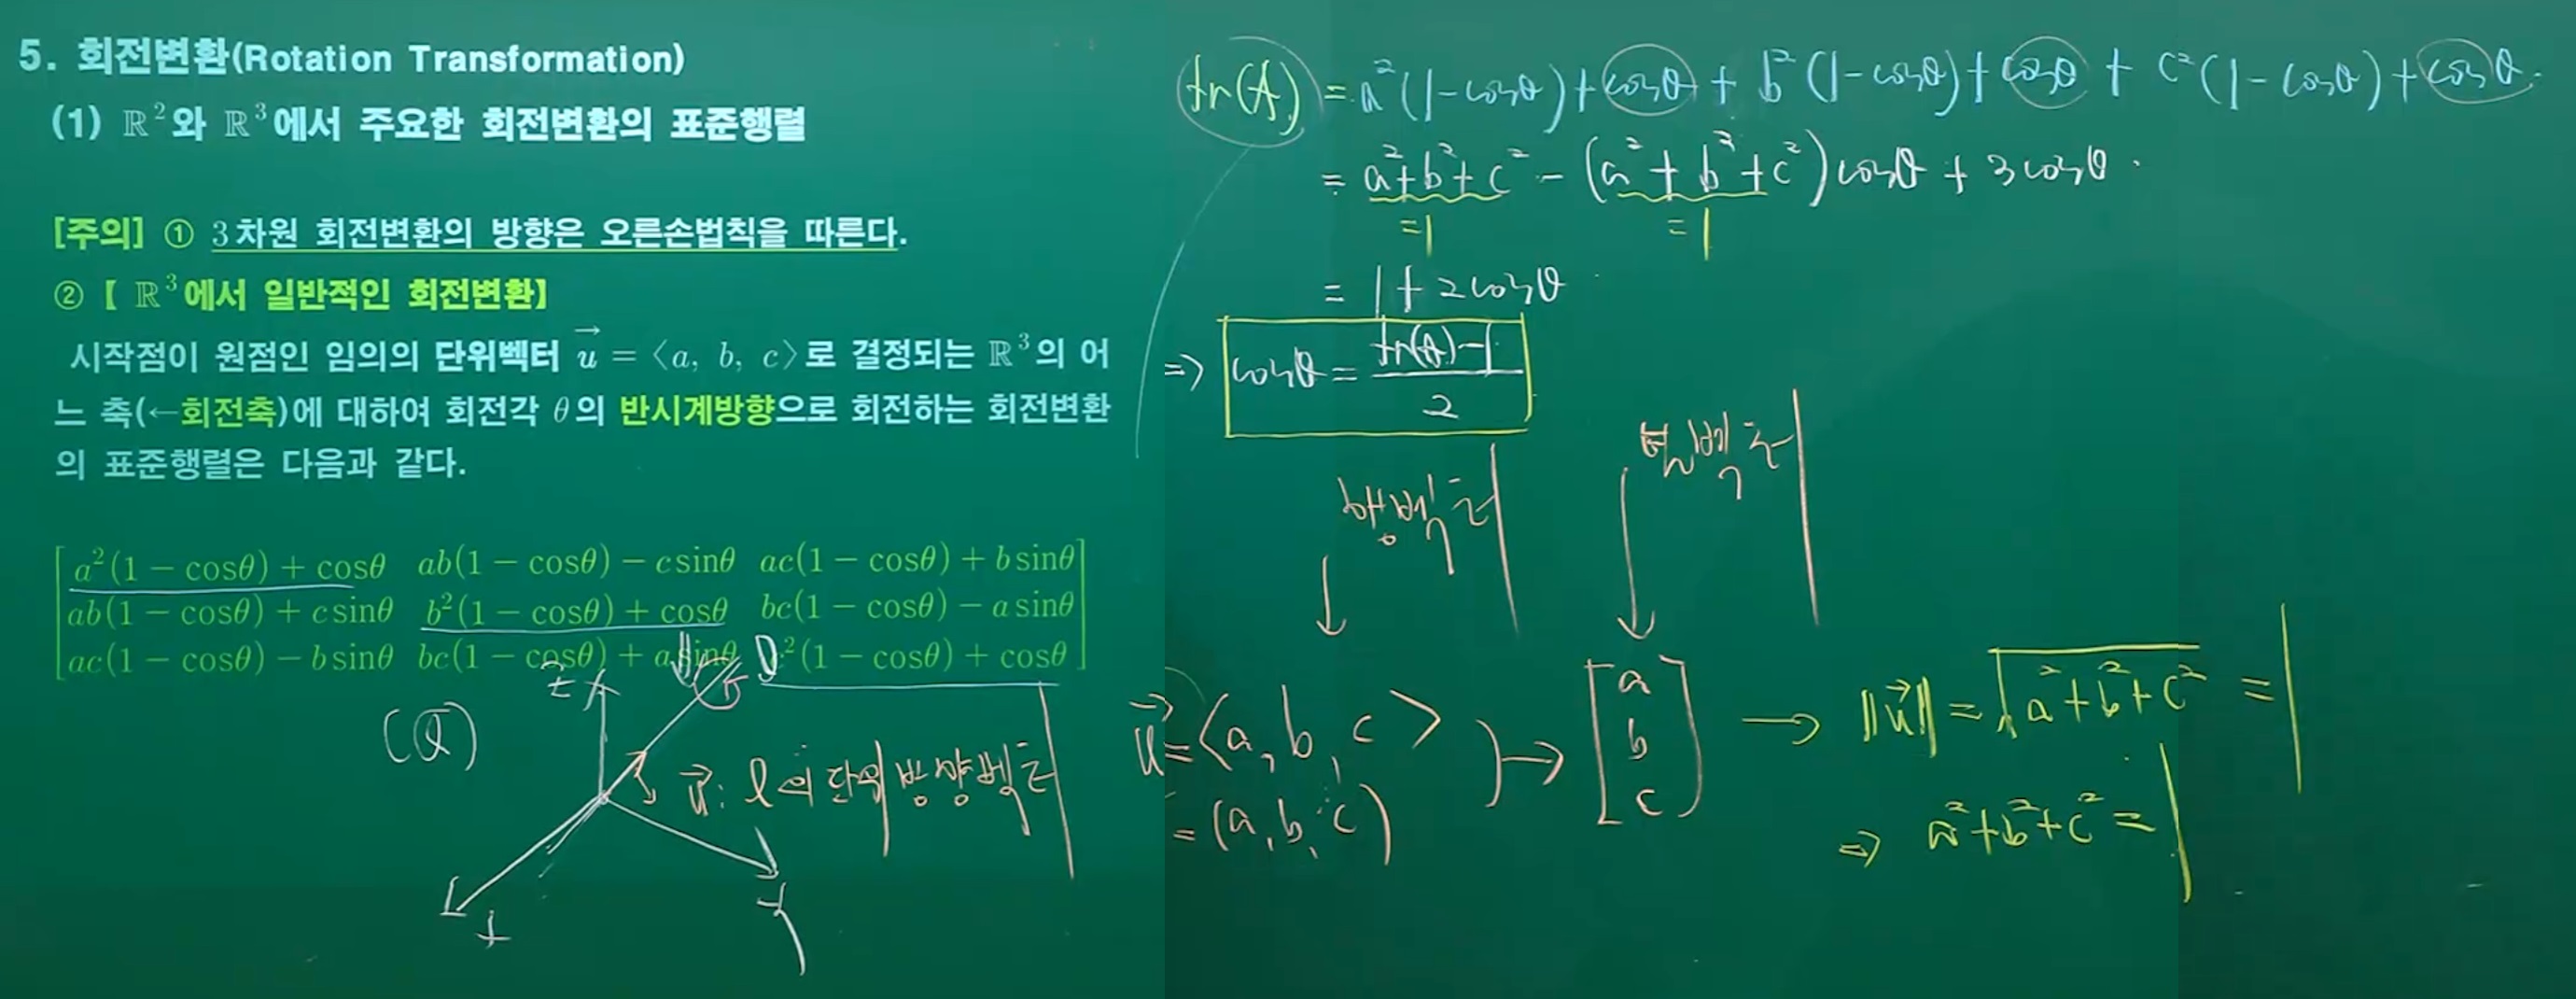 5. 회전변환(Rotation Transformation)
(1) ℝ²와 ℝ³에서 주요한 회전변환의 표준행렬
[주의] ① 3차원 회전변환의 방향은 오른손법칙을 따른다.
② 【 ℝ³에서 일반적인 회전변환】
시작점이 원점인 임의의 단위벡터 u⃗ = ⟨a, b, c⟩로 결정되는 ℝ³의 어
느 축(←회전축)에 대하여 회전각 θ의 반시계방향으로 회전하는 회전변환
의 표준행렬은 다음과 같다.
a²(1 − cosθ) + cosθ ab(1 − cosθ) − c sinθ ac(1 − cosθ) + b sinθ
ab(1 − cosθ) + c sinθ b²(1 − cosθ) + cosθ bc(1 − cosθ) − a sinθ
ac(1 − cosθ) − b sinθ bc(1 − cosθ) + a sinθ c²(1 − cosθ) + cosθ
z
u⃗ : l의 단위 방향벡터
x
y
tr(A) = a²(1−cosθ)+cosθ + b²(1−cosθ)+cosθ + c²(1−cosθ)+cosθ.
= a²+b²+c² − (a²+b²+c²)cosθ + 3cosθ.
=1 =1
= 1+2cosθ
⇒ cosθ = (tr(A)−1)/2
행벡터 열벡터
u⃗ = <a, b, c>
= (a, b, c)
→ [a b c]
→ ‖u⃗‖ = √(a²+b²+c²) = 1
⇒ a²+b²+c² = 1